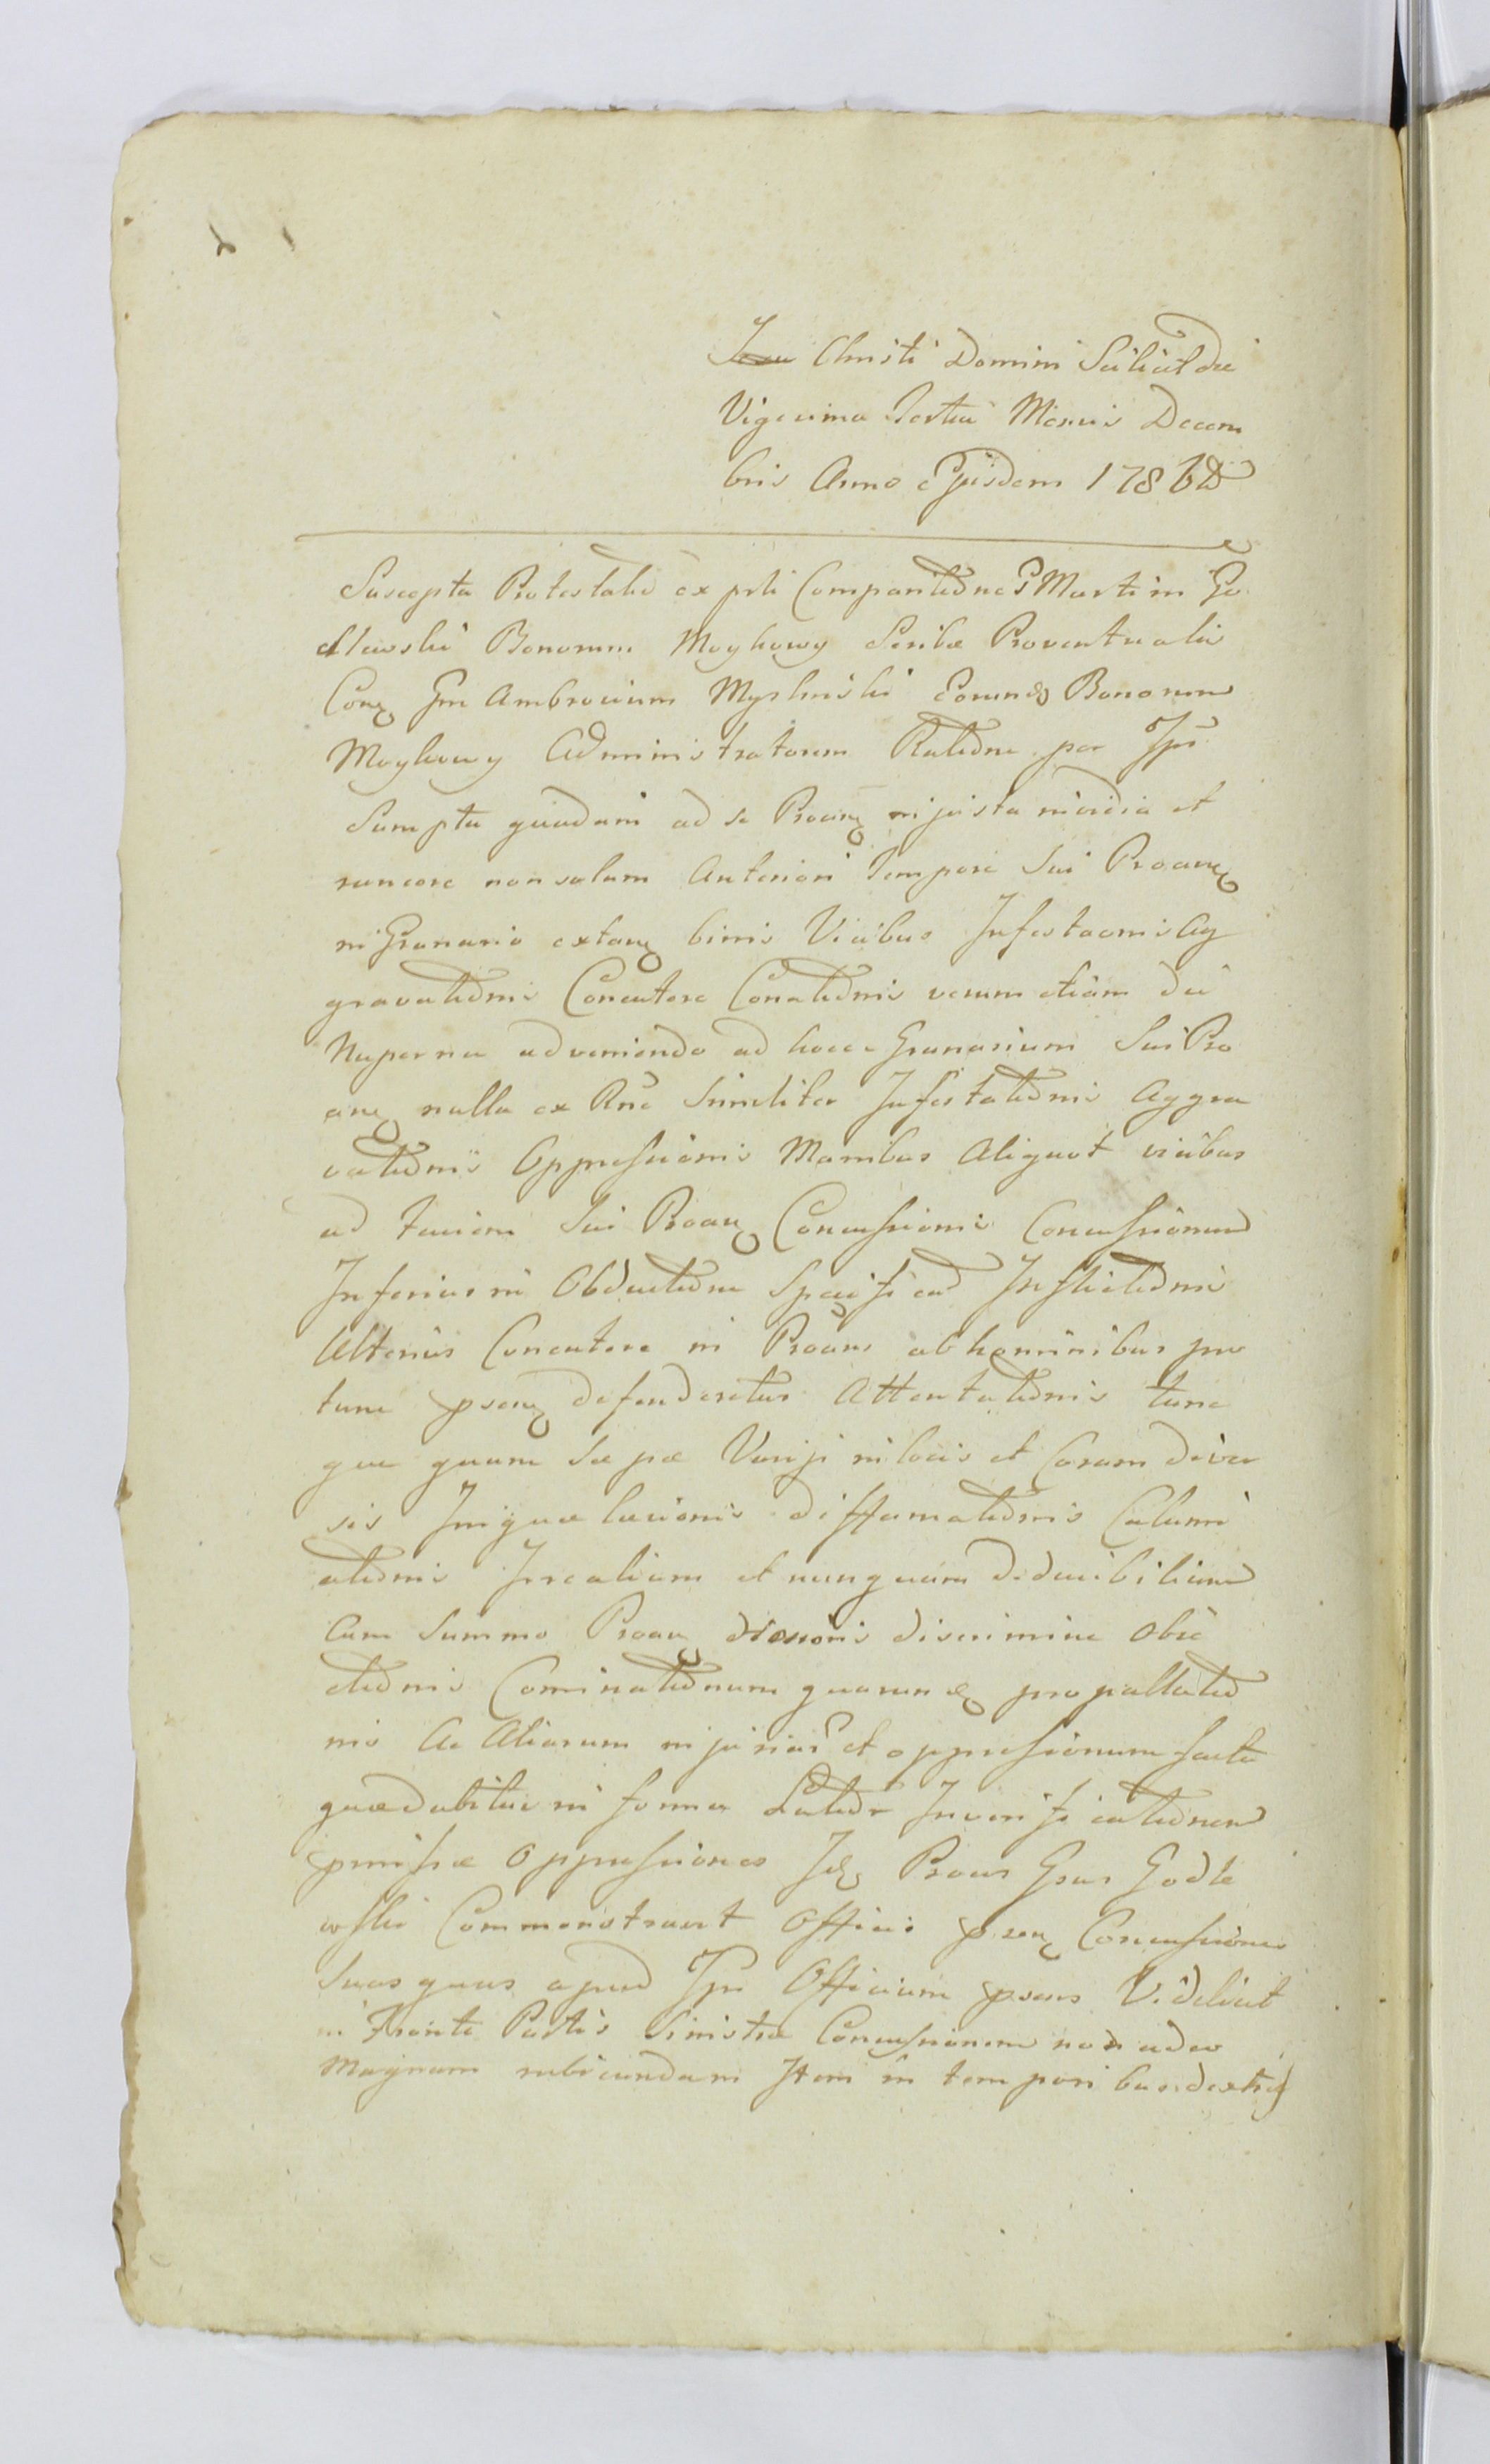 Jesu Christi Domini Scilicet die
Vigesima Tertia Mensis Decem
bris Anno Ejusdem 1786to
Suscepta Protestatio ex prti Comparitione G Martini Go
dlewski Bonorum Moykowy Scribæ Proventualis
Conq Gm Ambrosium Myslinski Eorundq Bonorum
Moykowy Administratorem Ratione per Ips
Sumpta quadam ad se Proanq injusta invidia et
rancore non solum Anteriori Tempore sui Proanq
in Granario extanq binis Vicibus Infestaonis Ag
gravationis Concutere Conationis verum etiam die
Nuperna adveniendo ad hocce Granarium Sui Pro
anq nulla ex Rne Similiter Infestationis Aggra
vationis Oppressionis Manibus Aliquot vicibus
ad faciem Sui Proanq Concussionis Concussionum
Inferius in Obductione Specificad Inflictionis
Ulterius Concutere ni Proans ab hominibus pro
tunc psenq defenderetur Attentationis tunc
que quam sæpæ Varijs in locis et Coram diver
sis Iniquæ læsionis diffamationis Calumni
ationis Irrealium et nunquam deducibilium
Cum Summo Proanq Honoris discrimine Obie
ctionis Cominationum quarunq propallatio
nis Ac Aliarum injuriar et oppressionum facta
quæ dabitur in forma Latior In verificationem
præmissæ Oppressiones Idq Proans Gsus Godle
wski Commonstravit Officio psenq Concussiones
suas quas apud Ips Officium psens Videlicet
in Fronte Partis Sinistræ Concussionem non adeo
Magnam rubicundam Item in temporibus dextris